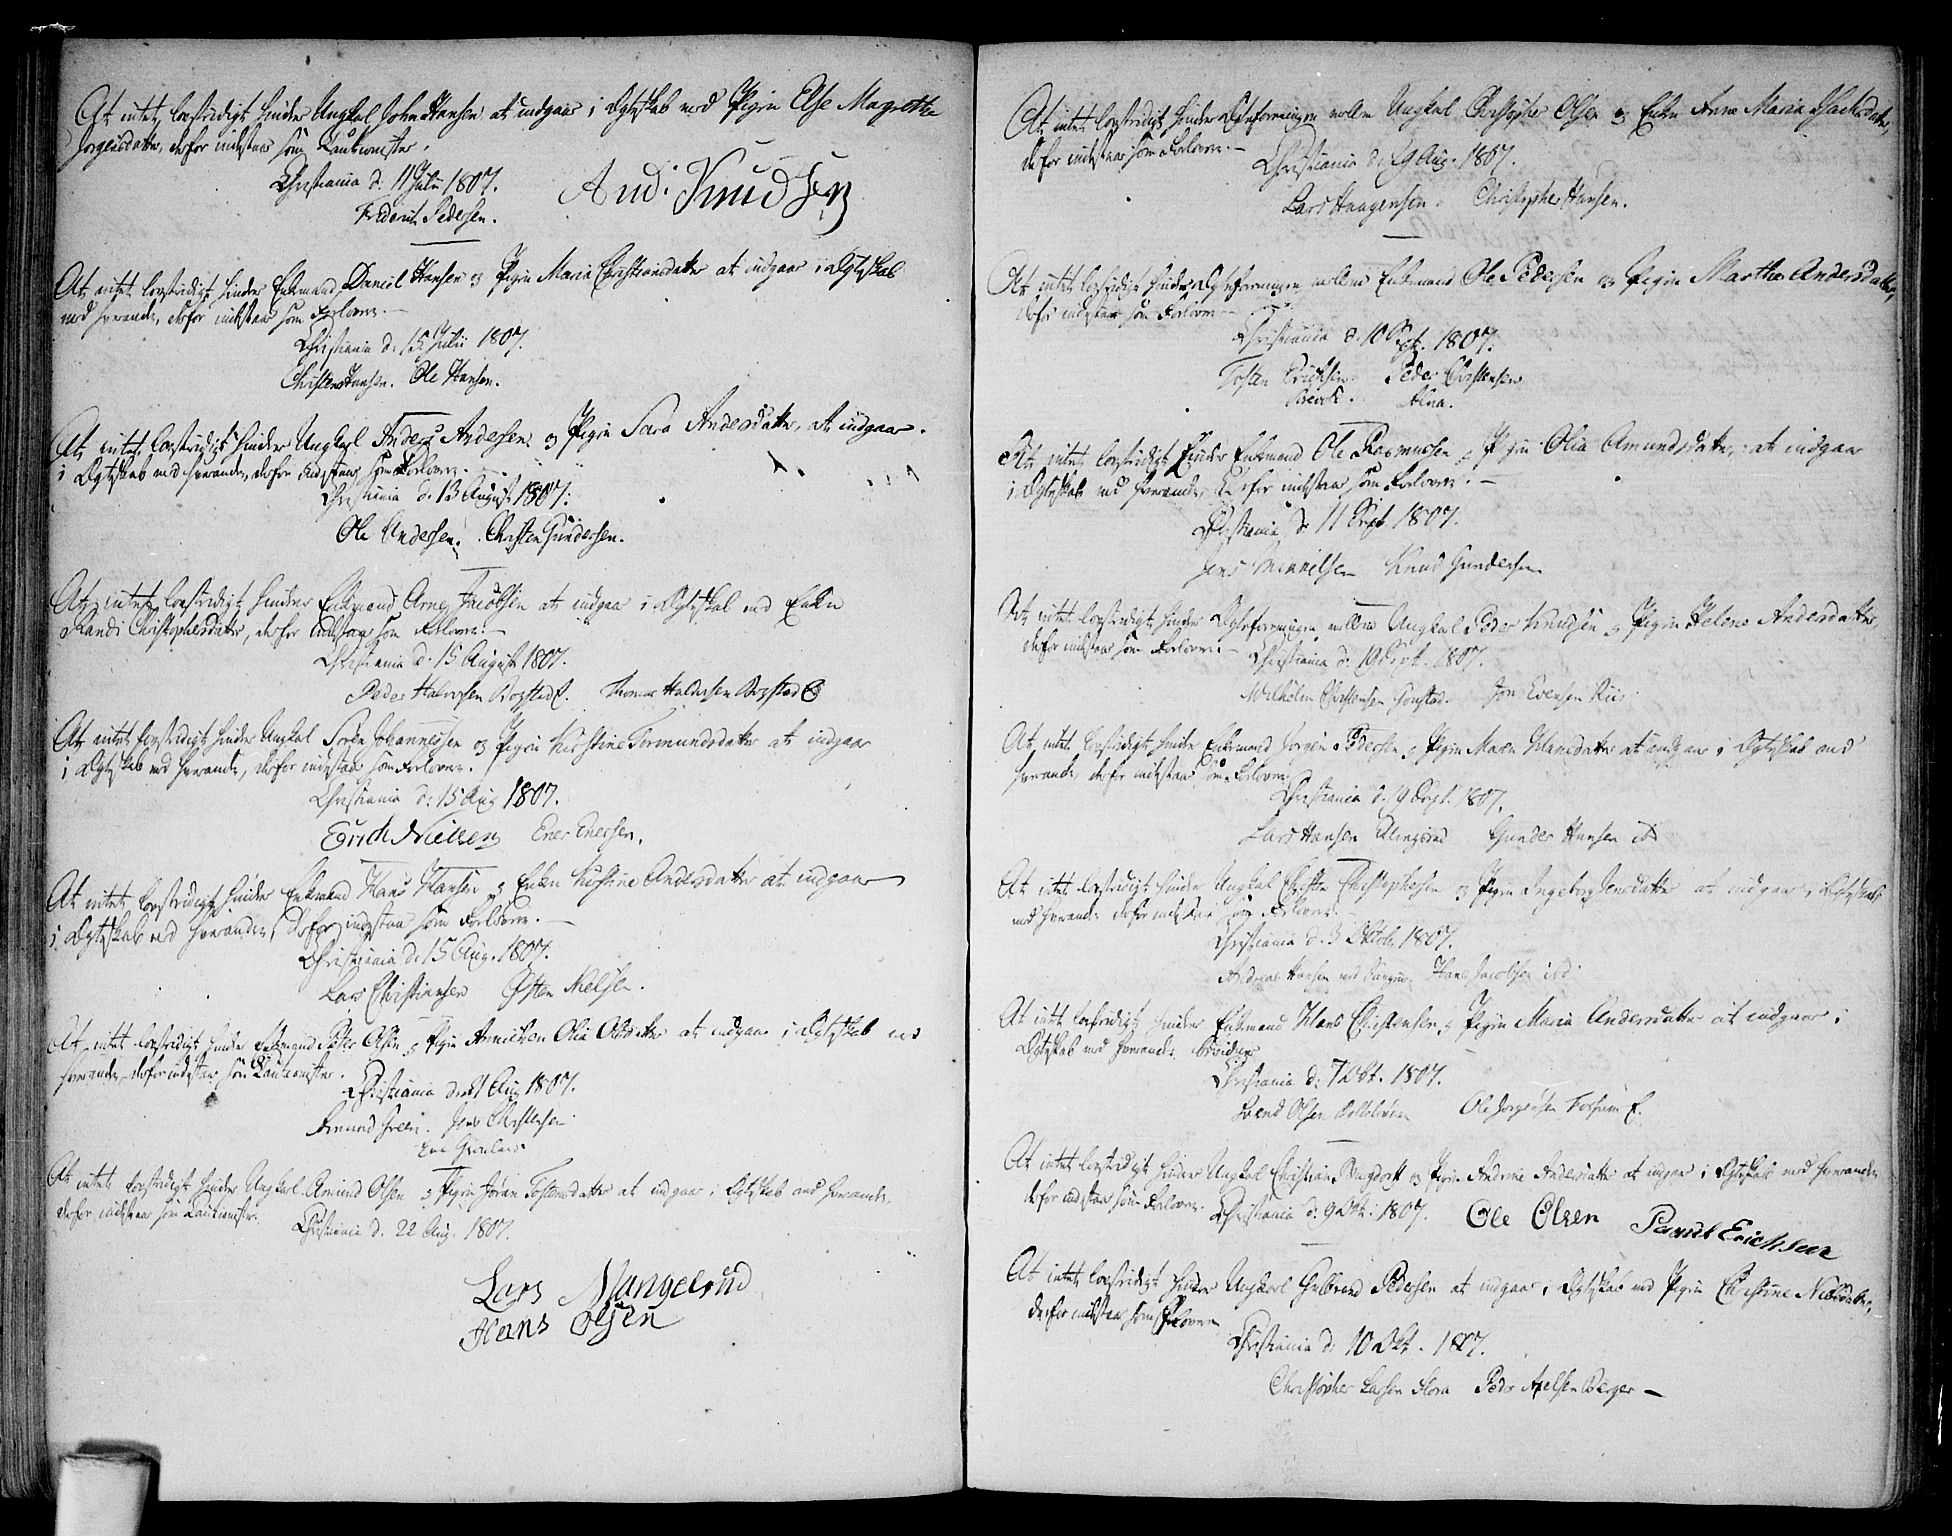 At intet lovstridigt hindrer Ungkal John Hansen at indgaae i Ægteskab med Pigen Else Magrethe
Jørgensdatter, derfor indestaaer som Kautionister.
Christiania d: 11 Julii 1807.
And: Knudsen
Friderich Pedersen.
At intet lovstridigt hindrer Enkemand Daniel Hansen og Pigen Maria Christiansdatter at indgaae i Ægteskab
med hverandre, derfor indestaaer som Forlovere. —
Christiania d: 15 Julii 1807.
Christen Hansen. Ole Hansen.
At intet lovstridigt hindrer Ungkarl Anders Andersen og Pigen Sara Andersdatter, at indgaae
i Ægteskab med hverandre, derfor indestaaer som Forlovere. —
Christiania d: 13 August 1807.
Ole Andersen. Christen Gundersen.
At intet lovstridigt hindrer Enkemand Arne Jacobsen at indgaae i Ægteskab med Enken
Randi Christophersdatter, derfor indestaaer som Forlovere. —
Christiania d: 15 August 1807.
Peder Halvorsen Bogstad. Thomas Halvorsen Bogstad
At intet lovstridigt hindrer Ungkal Søren Johannessen og Pigen Kirstine Tormundsdatter at indgaae
i Ægteskab med hverandre, derfor indestaaer som Forlovere.
Christiania d: 15 Aug 1807.
Erich Nielsen Ener Enersen.
At intet lovstridigt hindrer Enkemand Hans Hansen og Enken Kirstine Andersdatter at indgaae
i Ægteskab med hverandre, derfor indestaae som Forlovere. —
Christiania d: 15 Aug. 1807.
Lars Christiansen Østen Nielsen.
At intet lovstridigt hindrer Enkemand Peter Olsen og Pigen Annichen Olia Olsdatter at indgaae i Ægteskab med
hverandre, derfor indestaaer som Kautionister.
Christiania d: 21 Aug 1807.
Amund Green. Jens Christensen
At intet lovstridigt hindrer Ungkarl Amund Olsen og Pigen Jøran Tostensdatter at indgaae i Ægteskab med hverandre.
derfor indestaaer som Kautionister.
Christiania d. 22 Aug. 1807.
Lars Mangelrud
Hans Olsen
At intet lovstridigt hindrer Ægteforeningen mellem Ungkarl Christopher Olsen og Enken Anne Maria Isachsdatter,
derfor indestaaer som Forlovere. —
Christiania d: 29 Aug. 1807.
Lars Haagensen. Christopher Hansen.
At intet lovstridigt hindrer Ægteforeningen mellem Enkemand Ole Pedersen og Pigen Marthe Andersdatter,
derfor indestaaer som Forlovere —
Christiania d. 10 Sept. 1807.
Tosten Erichsen. Peder Christensen
At intet lovstridigt hindrer Enkemand Ole Rasmussen og Pigen Olia Amundsdatter, at indgaae
i Ægteskab med hverandre, derfor indestaaer som Forlovere. —
Christiania d: 11 Sept 1807.
Jens Mikkelsen Knud Gundersen
At intet lovstridigt hindrer Ægteforeningen mellem Ungkal Peder Knudsen og Pigen Helene Andersdatter,
derfor indestaaer som Forlovere. —
Christiania d: 19 Sept. 1807.
Wilhelm Christensen Jon Evensen Riis
At intet lovstridigt hindrer Enkemand Jørgen Pedersen og Pigen Maren Hansdatter at indgaae i Ægteskab med
hverandre, derfor indestaaer som Forlovere
Christiania d. 19 Sept. 1807.
Lars Hansen Gunder Hansen
At intet lovstridigt hindrer Ungkal Christen Christophersen og Pigen Ingeborg Jensdatter at indgaae i Ægteskab
med hverandre derfor indestaaer som Forlovere.
Christiania d. 3 Octob. 1807.
Andreas Hansen Hans Jacobsen ibd:
At intet lovstridigt hindrer Enkemand Hans Christensen og Pigen Maria Andersdatter at indgaae i
Ægteskab med hverandre bevidner
Christiania d: 7 Okt. 1807.
Svend Olsen Ole Jørgensen
At intet lovstridigt hindrer Ungkal Christian Bergdorff og Pigen Andrine Andersdatter at indgaae i Ægteskab med hverandre
derfor indestaaer som Forlovere.
Christiania d: 9 Okt: 1807. Ole Olsen Paaul Erichsen
At intet lovstridigt hindrer Ungkarl Gulbrand Pedersen at indgaae i Ægteskab med Pigen Christine Nielsdatter,
derfor indestaaer som Forlovere
Christiania d: 10 Okt. 1807.
Christopher Larsen Peder Axelsen Berger —